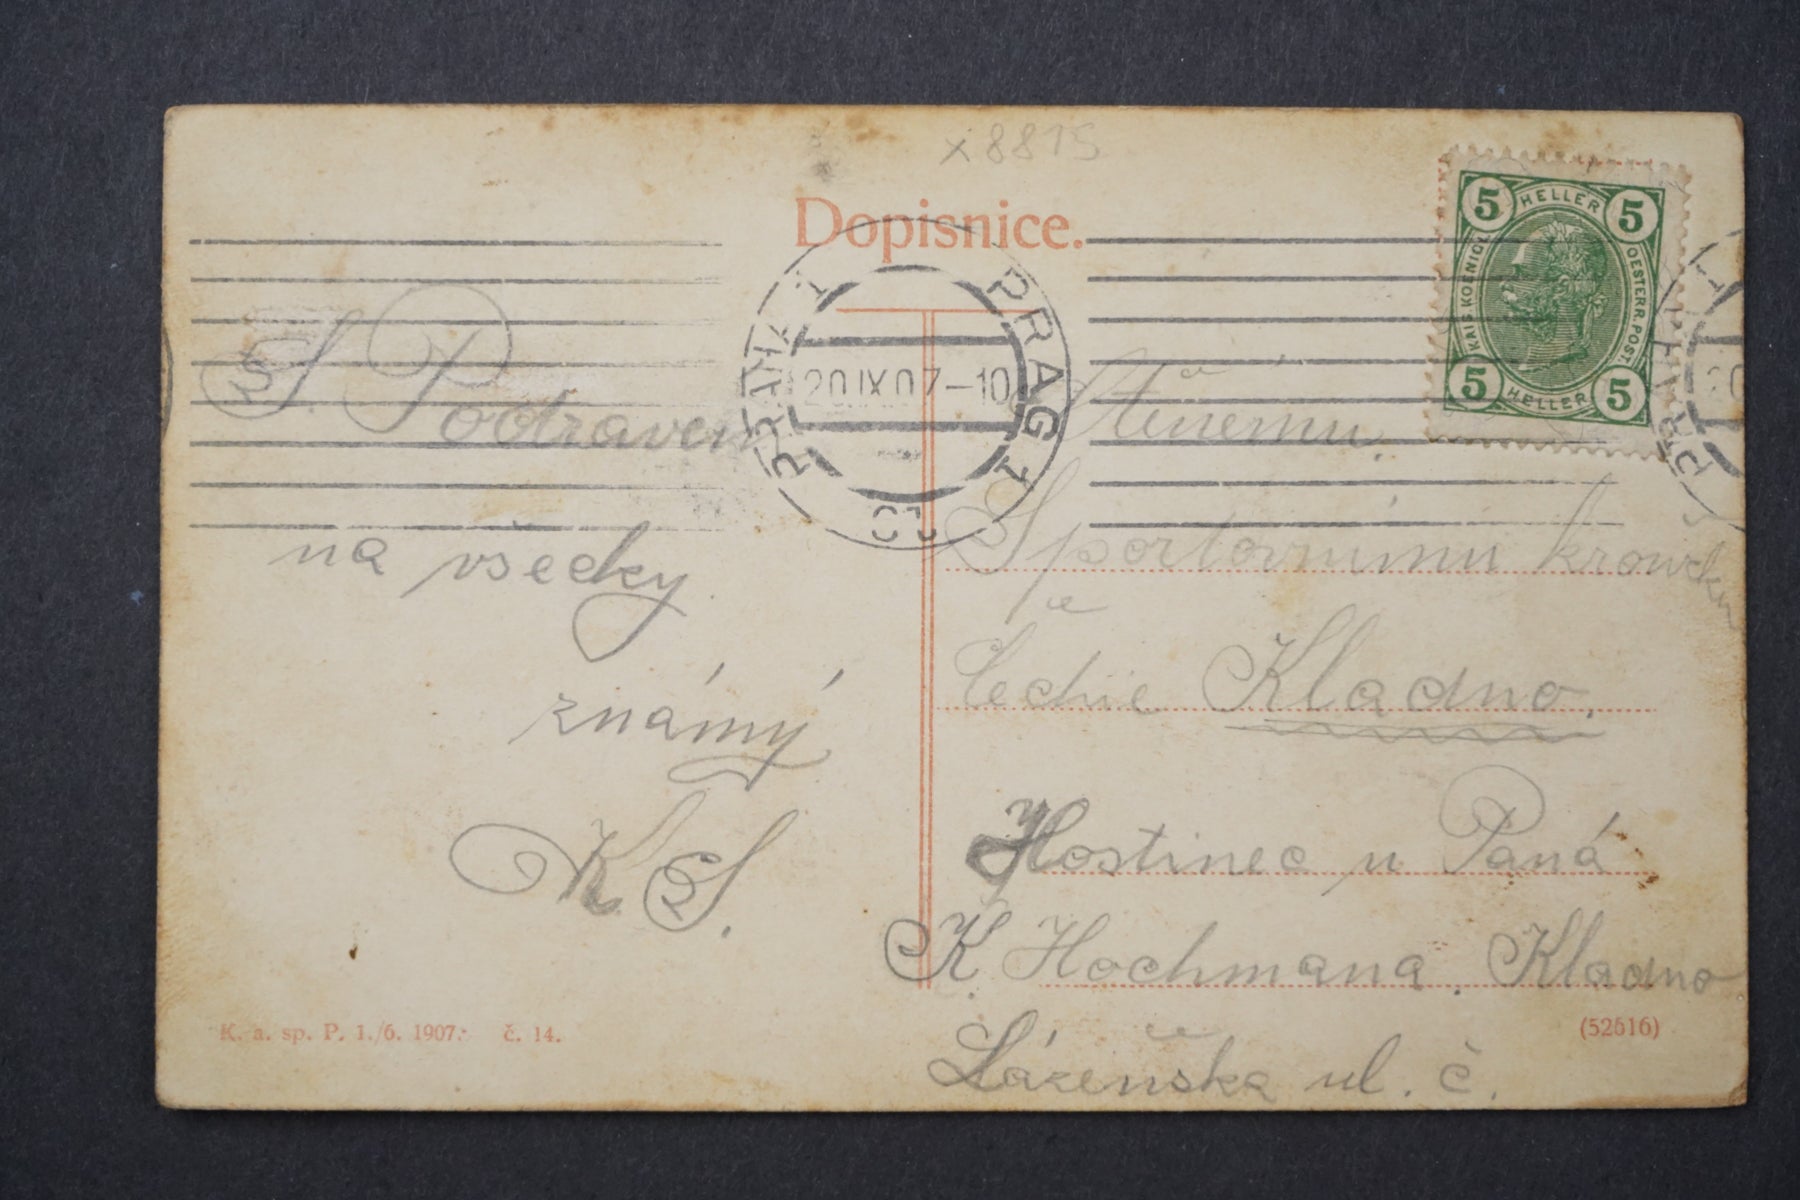 x8815
Dopisnice.
5 HELLER 5
KAIS KOENIGL OESTERR. POST.
5 HELLER 5
PRAHA 1 PRAG 1
20 IX 07-10
S Pozdravem
na všecky
známý
K S.
Sportovnímu kroužku
Čechie Kladno.
Hostinec u Paná
K Hochmana. Kladno
Lázeňska ul. č.
K. a. sp. P. 1./6. 1907. č. 14.
(52616)